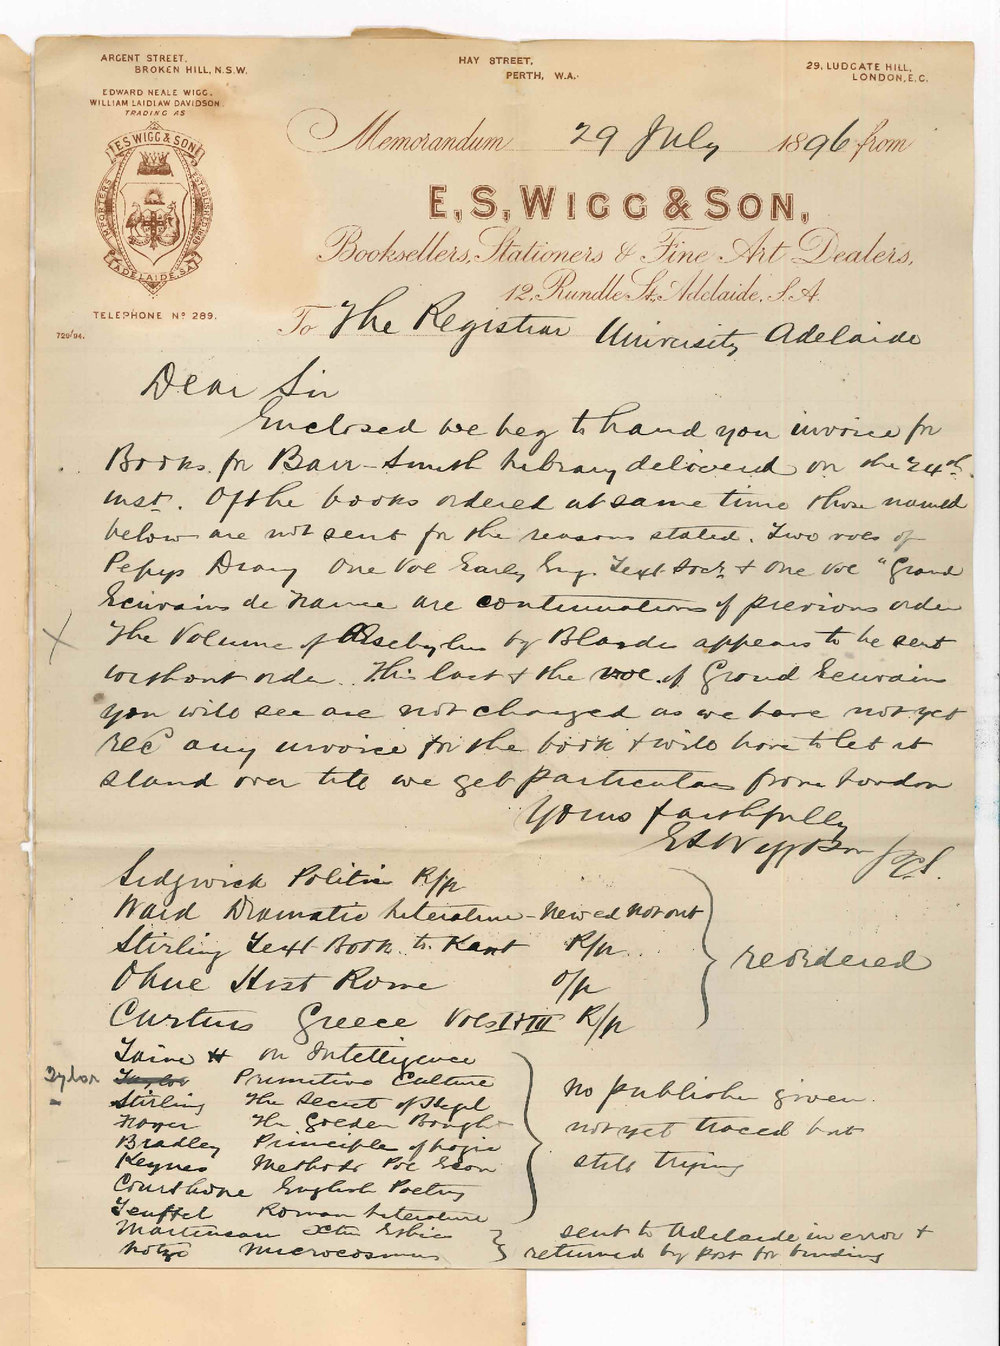 ARGENT STREET,
BROKEN HILL, N.S.W.
HAY STREET,
PERTH, W.A.
29, LUDGATE HILL,
LONDON, E.C.
EDWARD NEALE WIGG,
WILLIAM LAIDLAW DAVIDSON
TRADING AS
E.S. WIGG & SON
IMPORTERS
ESTABLISHED 1849
ADELAIDE, S.A.
TELEPHONE No 289.
729/94.
Memorandum 29 July 1896 from
E. S. WIGG & SON,
Booksellers, Stationers & Fine Art Dealers,
12, Rundle St. Adelaide, S.A.
To The Registrar University Adelaide
Dear Sir
Enclosed we beg to hand you invoice for
Books for Barr-Smith Library delivered on the 24th
inst. Of the books ordered at same time those named
below are not sent for the reasons stated. Two vols of
Pepys Diary One Vol Early Eng. Text Socy & One Vol "Grand
Ecrivains de France are continuations of previous order
X The Volume of Aeschylus by Blaydes appears to be sent
without order. This last & the vol. of Grand Ecrivains
you will see are not charged as we have not yet
recd any invoice for the book & will have to let it
stand over till we get particulars from London
Yours faithfully
E S Wigg & Son
Sidgwick Politics R/p
Ward Dramatic Literature - New ed not out
Stirling Text Book to Kant R/p
Ohne Hist Rome O/p
Curtius Greece Vols I & III R/p
reordered
Taine H on Intelligence
Tylor Taylor Primitive Culture
Stirling The Secret of Hegel
Frazer The Golden Bough
Bradley Principles of Logic
Keynes Methods Pol Econ
Courthope English Poetry
Teuffel Roman Literature
no publisher given.
not yet traced but
still trying
Martensen Xtn Ethics
Lotze Microcosmus
sent to Adelaide in error &
returned by post for binding